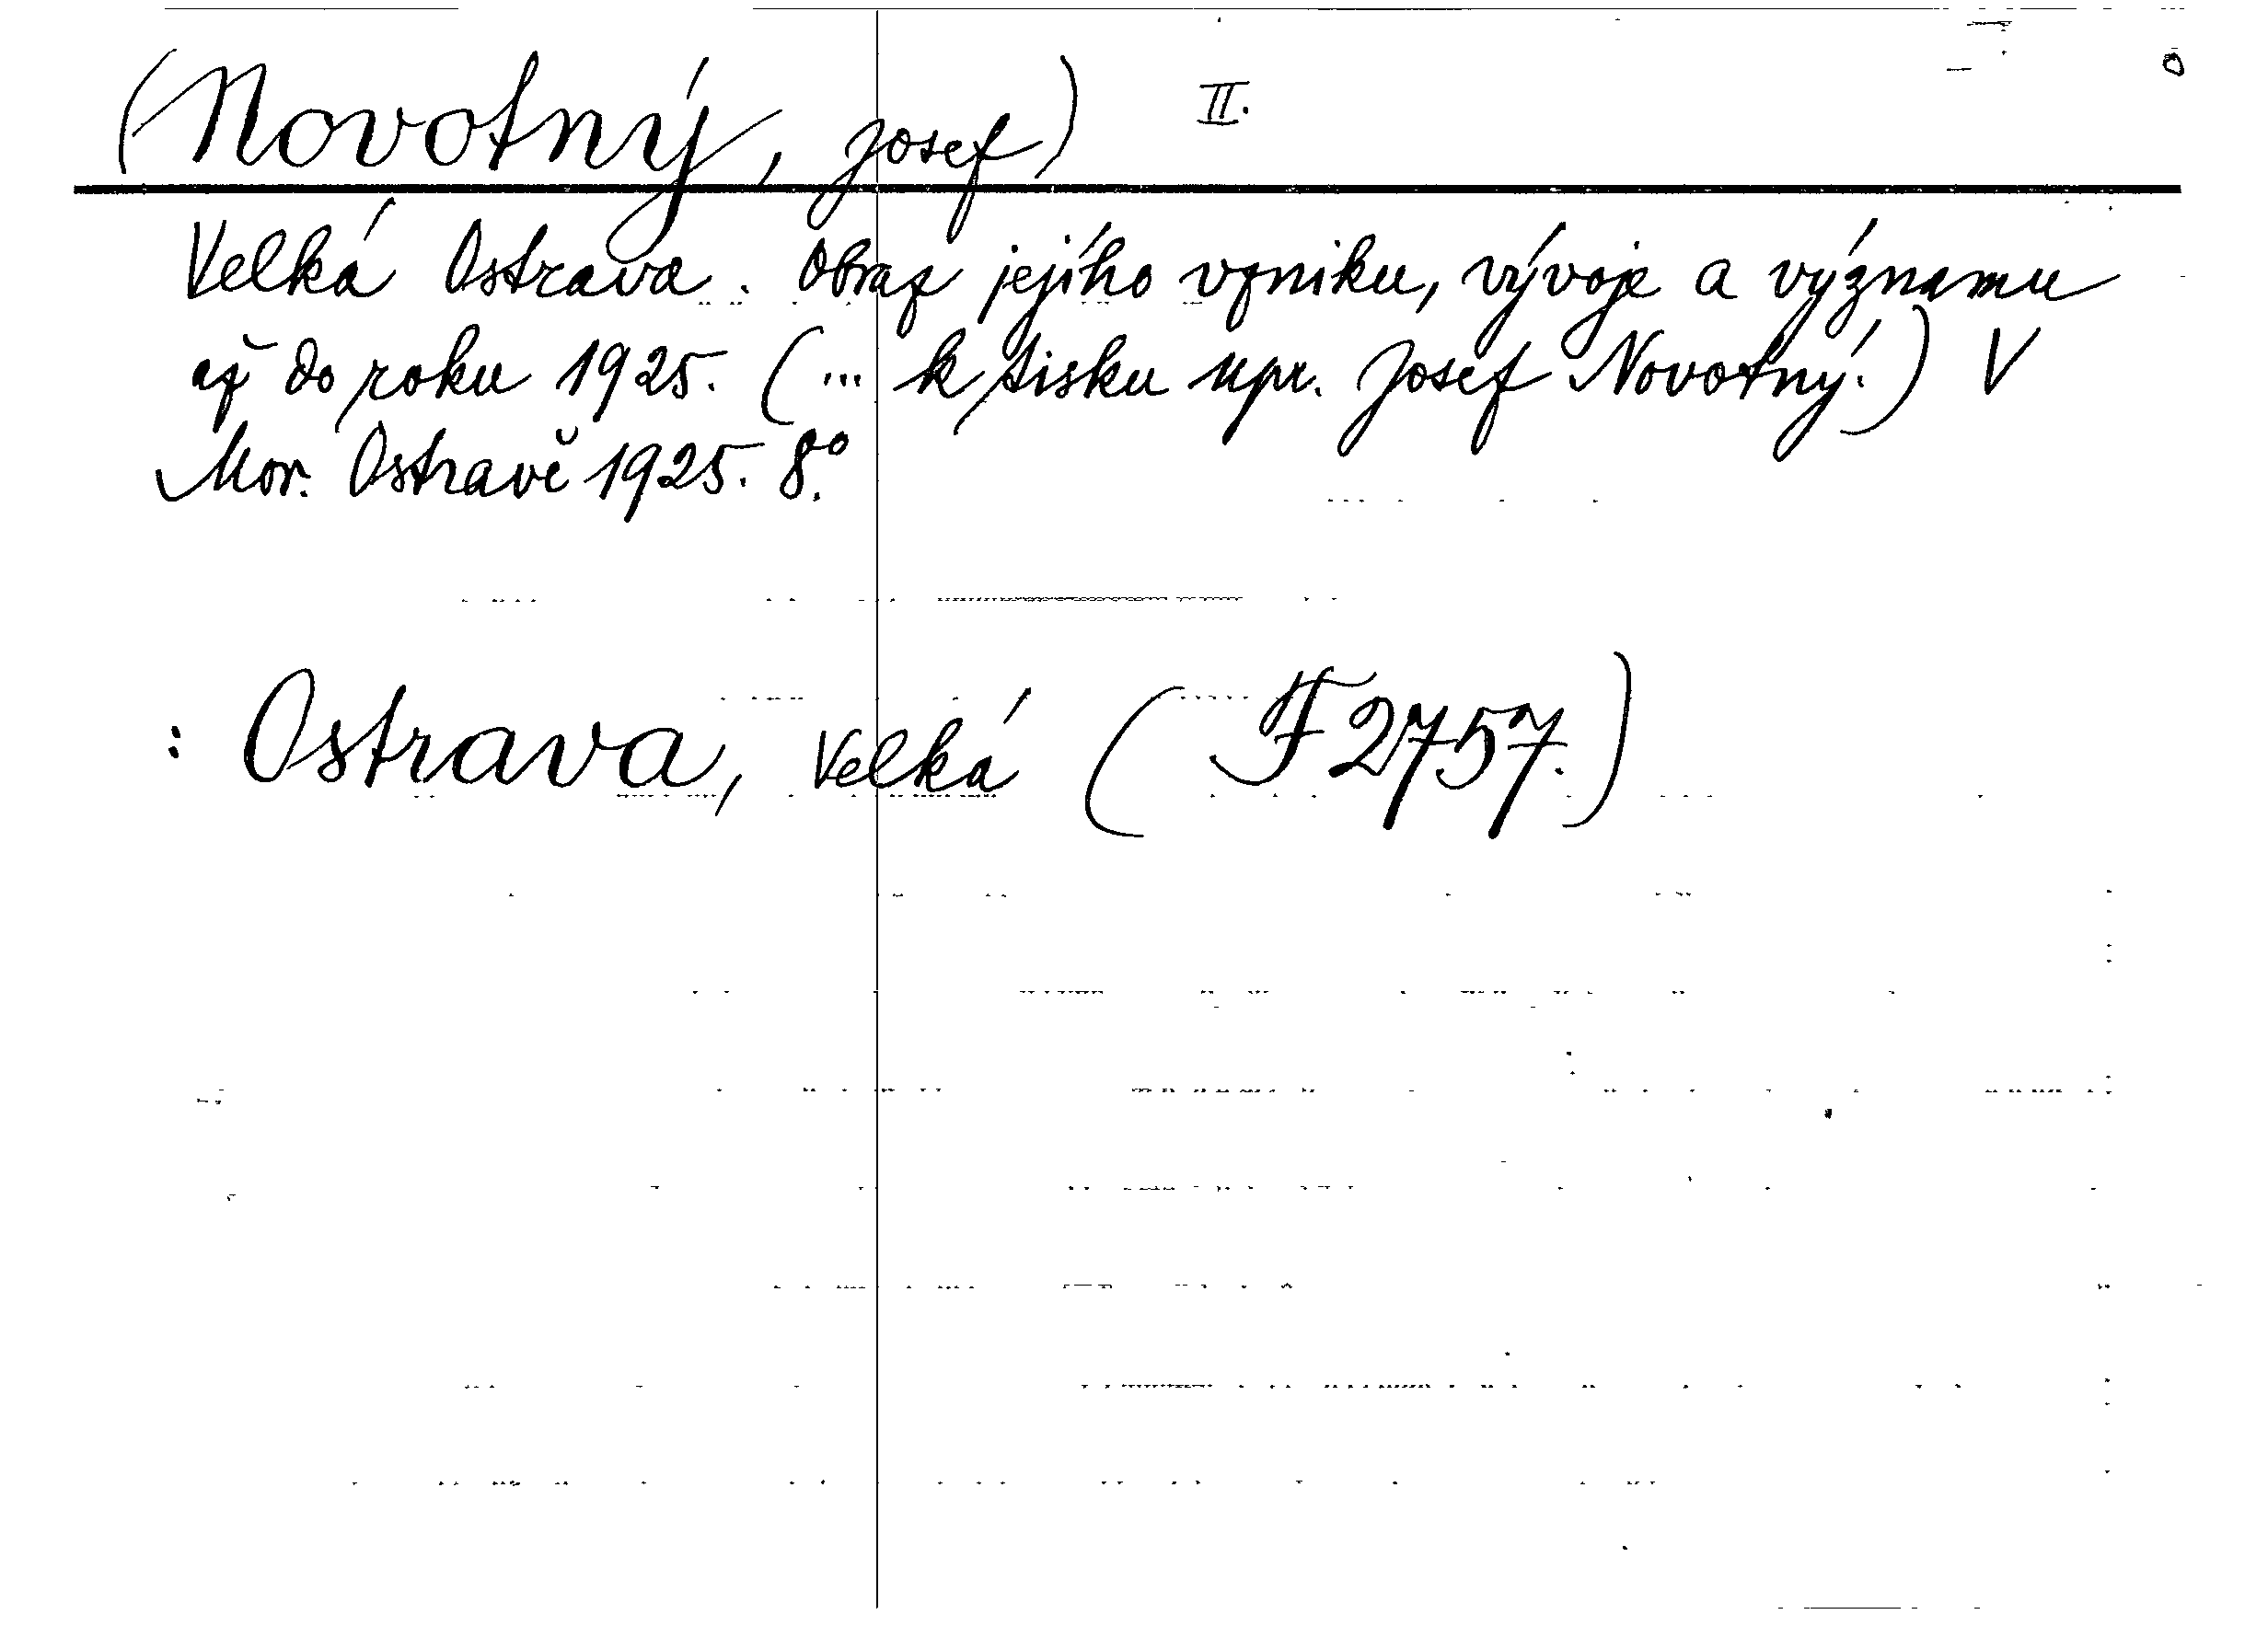 (Novotný, Josef) II.
Velká Ostrava. Obraz jejího vzniku, vývoje a významu
až do roku 1925. (... k tisku upr. Josef Novotný.) V
Mor. Ostravě 1925. 8°.
: Ostrava, Velká (F 2757.)